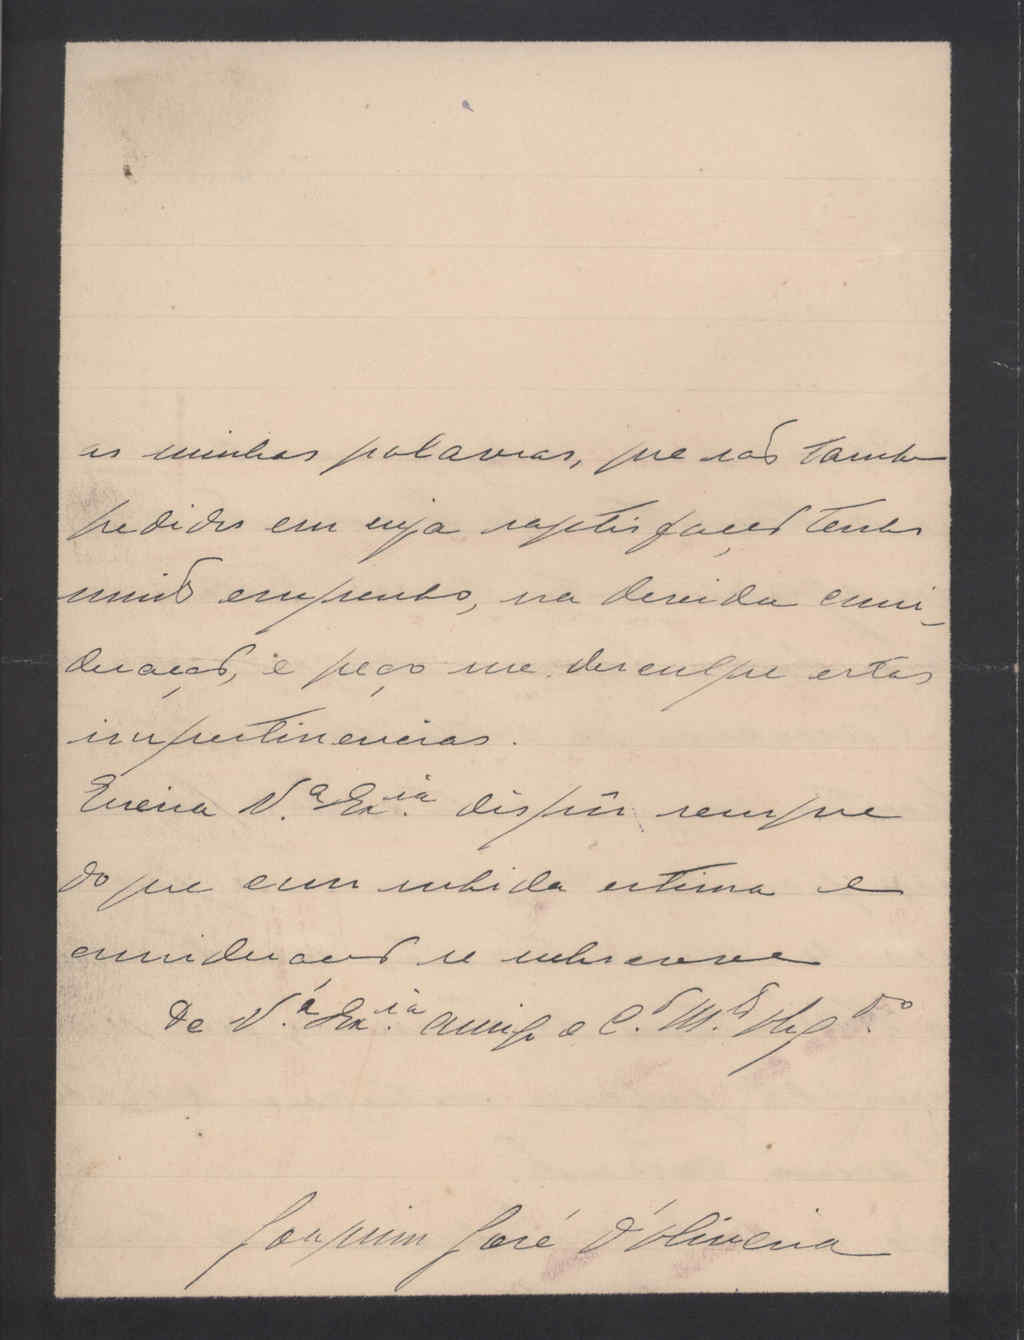 as minhas palavras, que são tambem
pedidos em cuja satisfação tenho
muito empenho, na devida consi-
deração, e peço me desculpe estas
impertinencias.
Queira V.ª Ex.ia dispôr sempre
do que com subida estima e
consideração se subscreve
De V.ª Ex.ia amigo e C.º M.to Obg.do
Joaquim José d'Oliveira